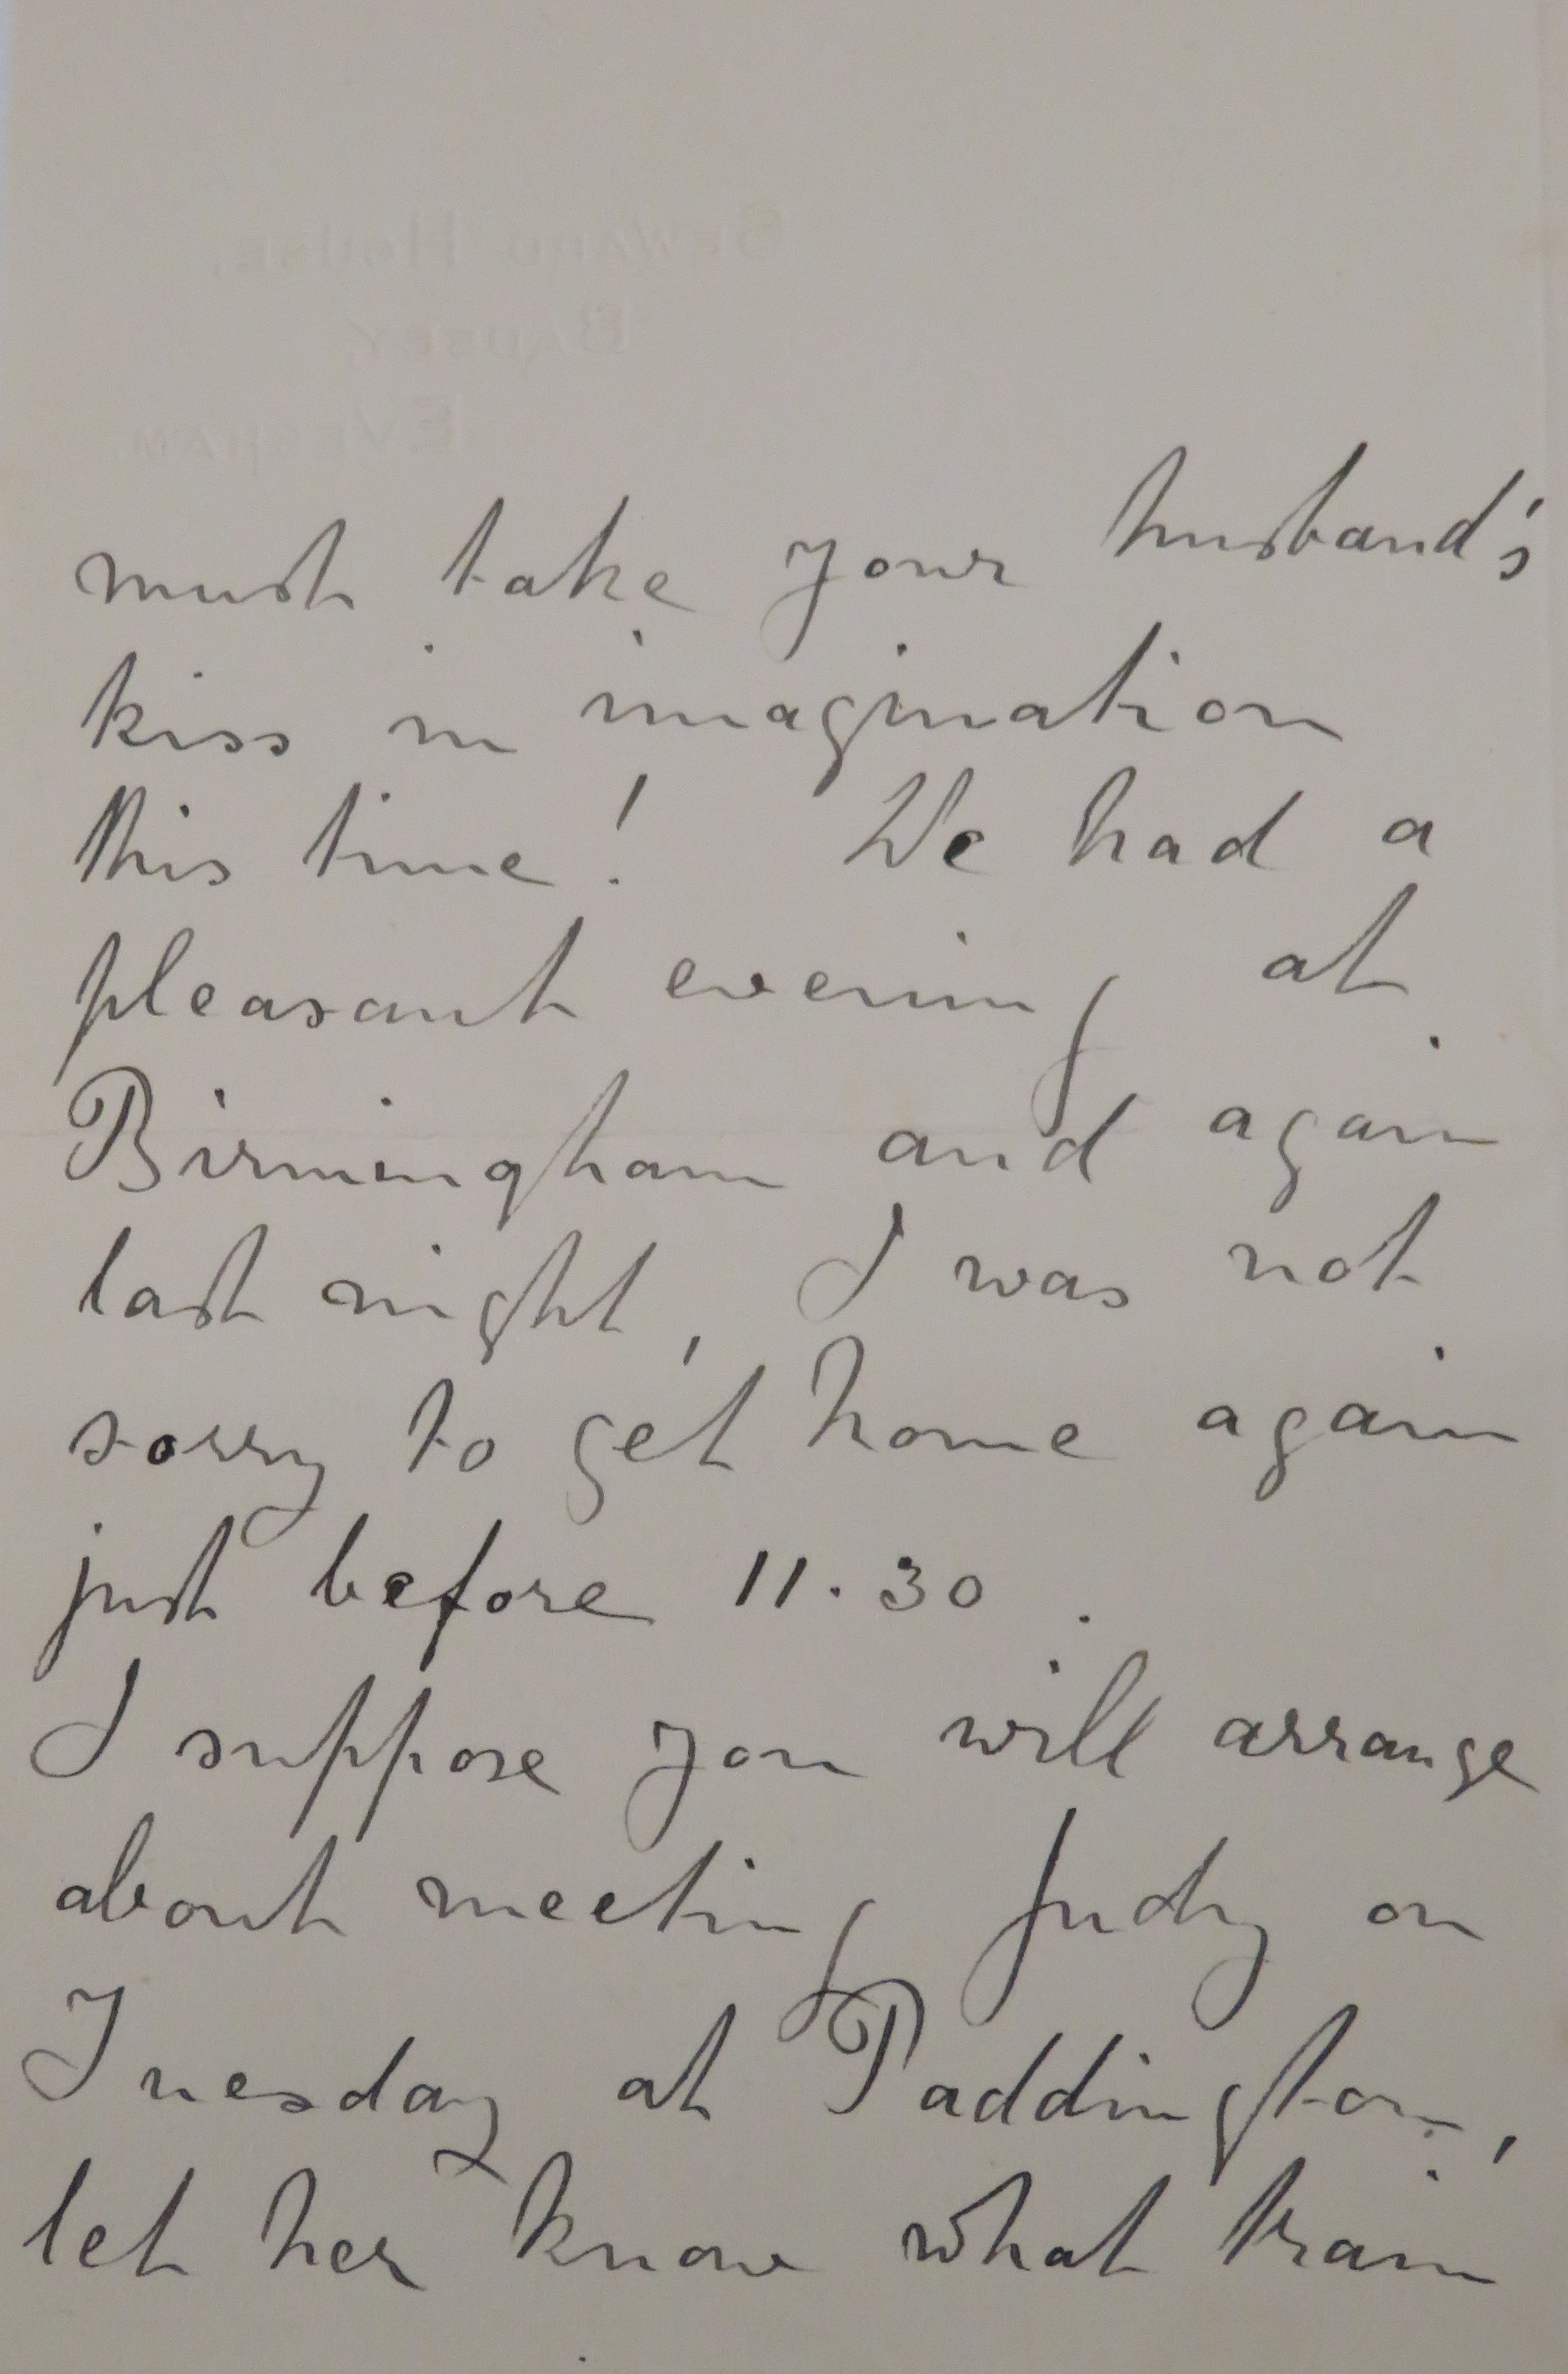 SEWARD HOUSE,
BADSEY,
EVESHAM.
must take your husband's
kiss in imagination
this time! We had a
pleasant evening at
Birmingham and again
last night, I was not
sorry to get home again
just before 11.30.
I suppose you will arrange
about meeting Judy on
Tuesday at Paddington,
let her know what train